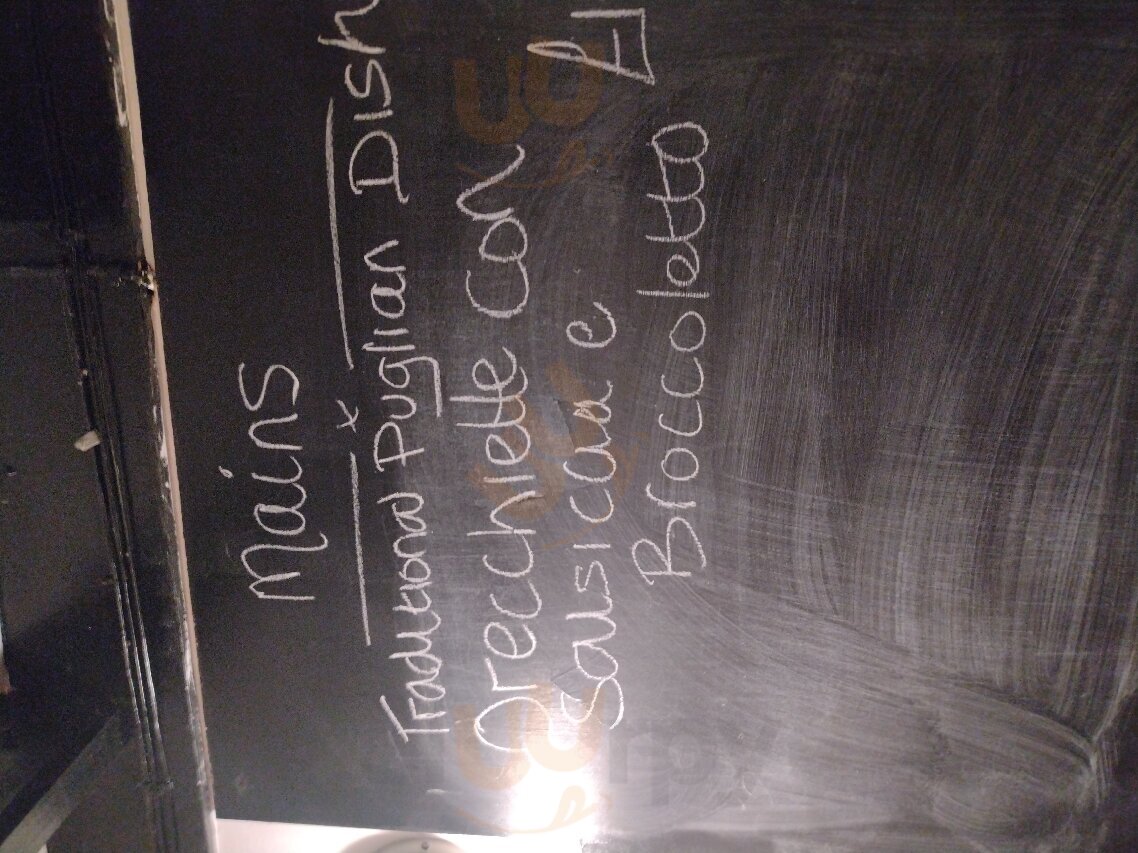 Mains
x
Traditional Puglian Dish
Orecchiette con
Sausicaia e
Broccoletto